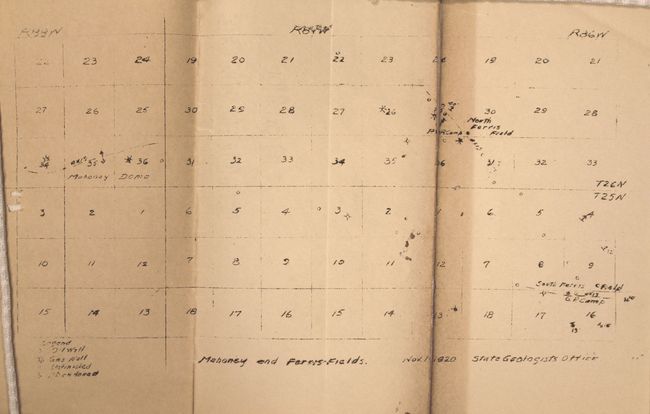 R88W R87W R86W
22 23 24 19 20 21 22 23 24 19 20 21
27 26 25 30 25 28 27 26 30 29 28
North
Ferris
Field
34 35 36 31 32 33 34 35 36 31 32 33
Mahoney Dome
T26N
T25N
3 2 1 6 5 4 3 2 1 6 5 4
10 11 12 7 8 9 10 11 12 7 8 9
South Ferris Field
Camp
15 14 13 18 17 16 15 14 13 18 17 16
Legend
Oil Well
Gas Well
Abandoned
Mahoney and Ferris-Fields. Nov. 1-1920 State Geologists Office